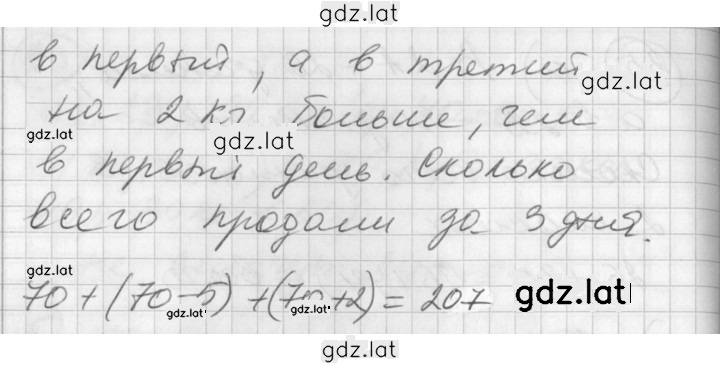 gdz.lat
в первый, а в третий
gdz.lat
на 2 кг больше, чем
gdz.lat
gdz.lat
в первый день. Сколько
всего продали за 3 дня.
gdz.lat
70 + (70-5) + (70+2) = 207
gdz.lat
gdz.lat
gdz.lat
gdz.lat